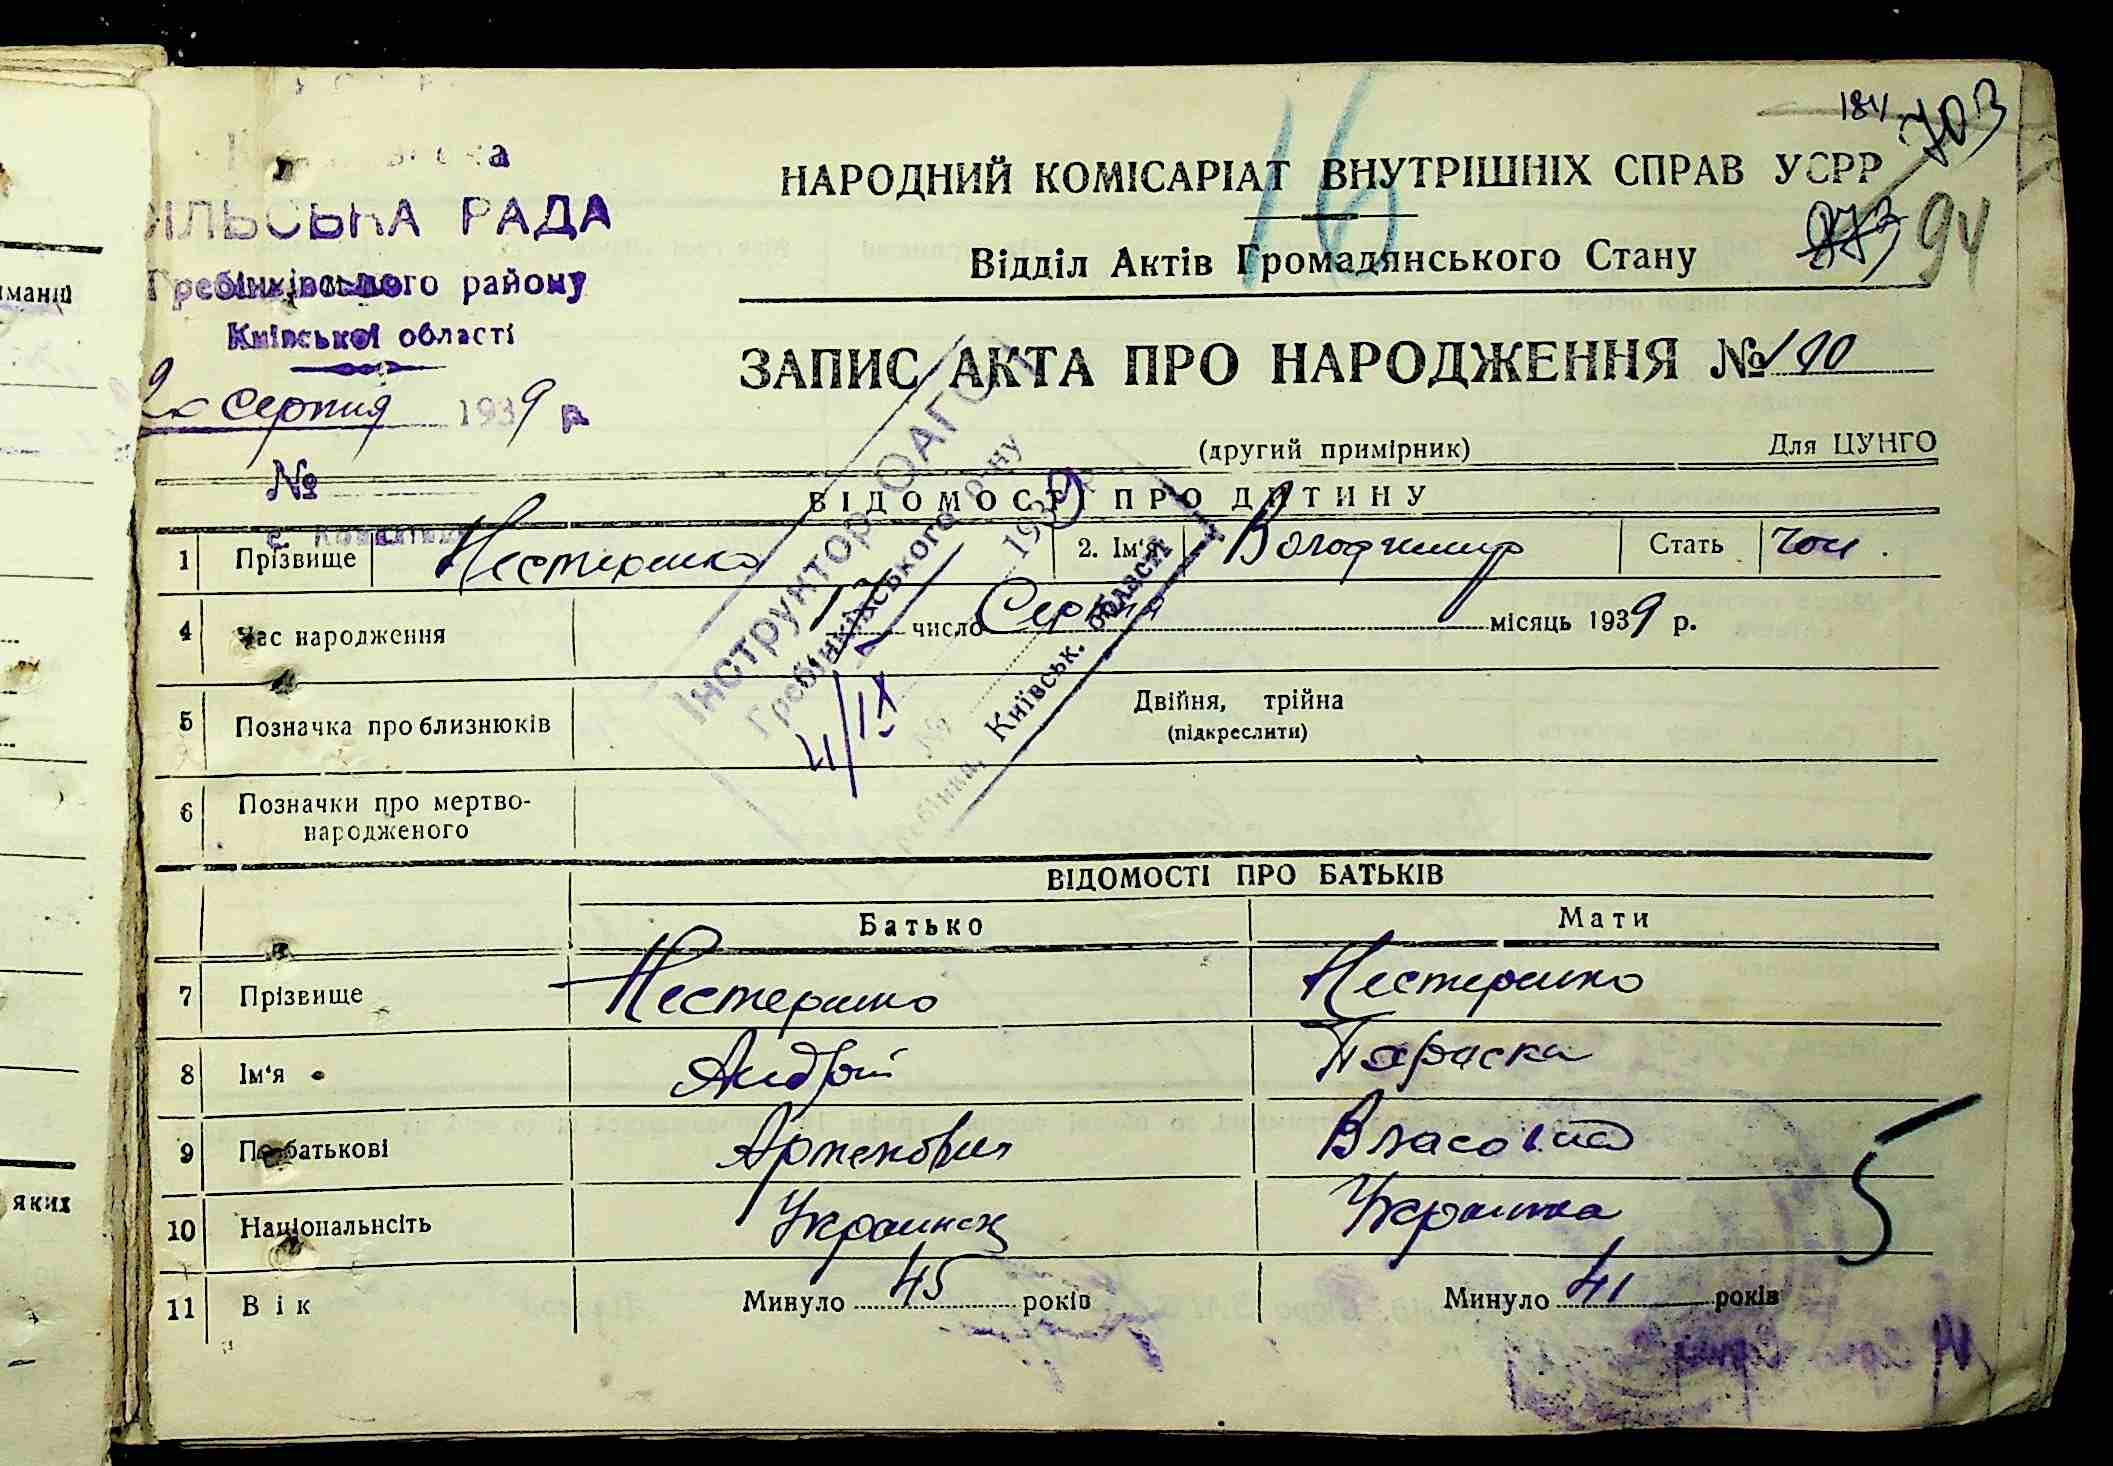 184
703
НАРОДНИЙ КОМІСАРІАТ ВНУТРІШНІХ СПРАВ УСРР
16
873
94
Відділ Актів Громадянського Стану
ІЛЬСЬКА РАДА
Гребінківського району
Київської області
20 Серпня 1939 р.
№
ЗАПИС АКТА ПРО НАРОДЖЕННЯ № 190
(другий примірник) Для ЦУНГО
ВІДОМОСТІ ПРО ДИТИНУ
1 Прізвище Нестеренко 2. Ім'я Володимир Стать чол.
4 Час народження число Серпня місяць 1939 р.
5 Позначка про близнюків Двійня, трійна
(підкреслити)
6 Позначки про мертво-
народженого
Інструктор ОАГС
Гребінківського р-ну
4/IX 1939
№
Гребінка, Київськ. області
ВІДОМОСТІ ПРО БАТЬКІВ
Батько Мати
7 Прізвище Нестеренко Нестеренко
8 Ім'я Андрій Параска
9 По батькові Артемович Власовна
10 Національнсіть Украинец Украинка
5
11 Вік Минуло 45 років Минуло 41 років
яких